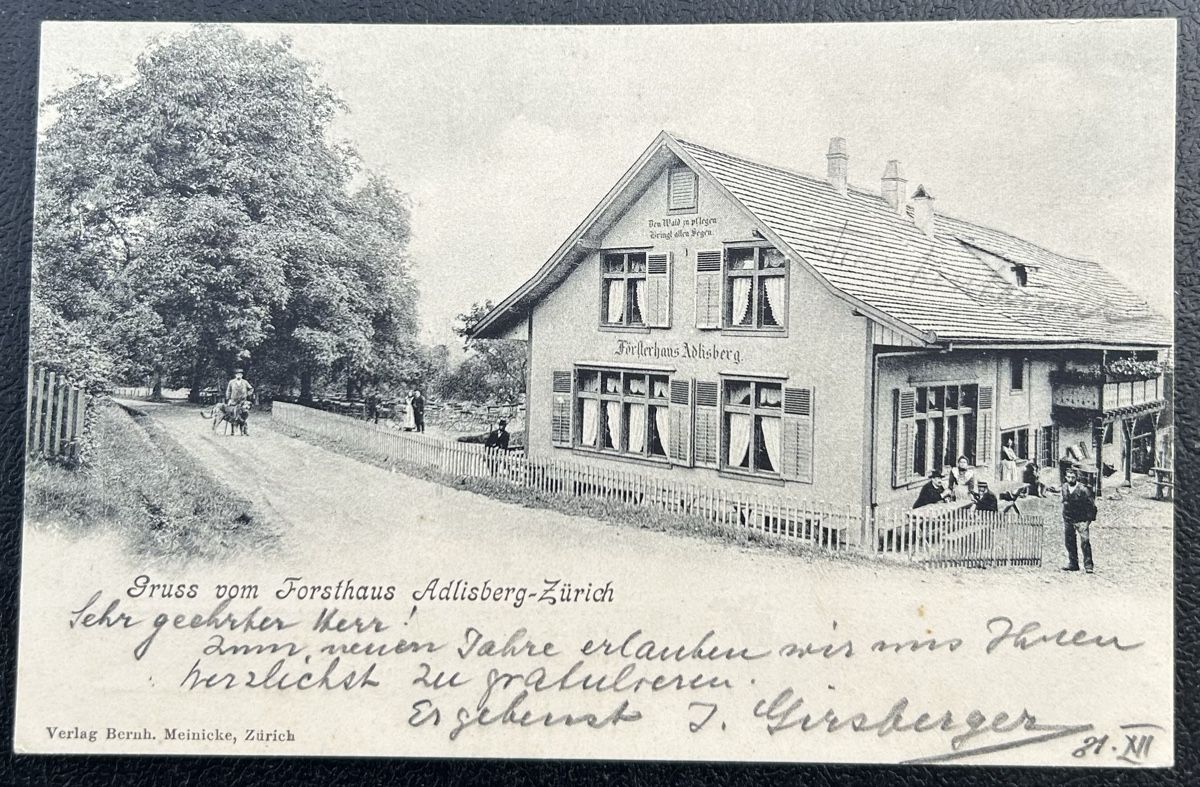 Den Wald zu pflegen
Bringt allen Segen.
Försterhaus Adlisberg.
Gruss vom Forsthaus Adlisberg-Zürich
Sehr geehrter Herr!
Zum neuen Jahre erlauben wir uns Ihnen
herzlichst zu gratulieren.
Ergebenst J. Girsberger
31. XII
Verlag Bernh. Meinicke, Zürich